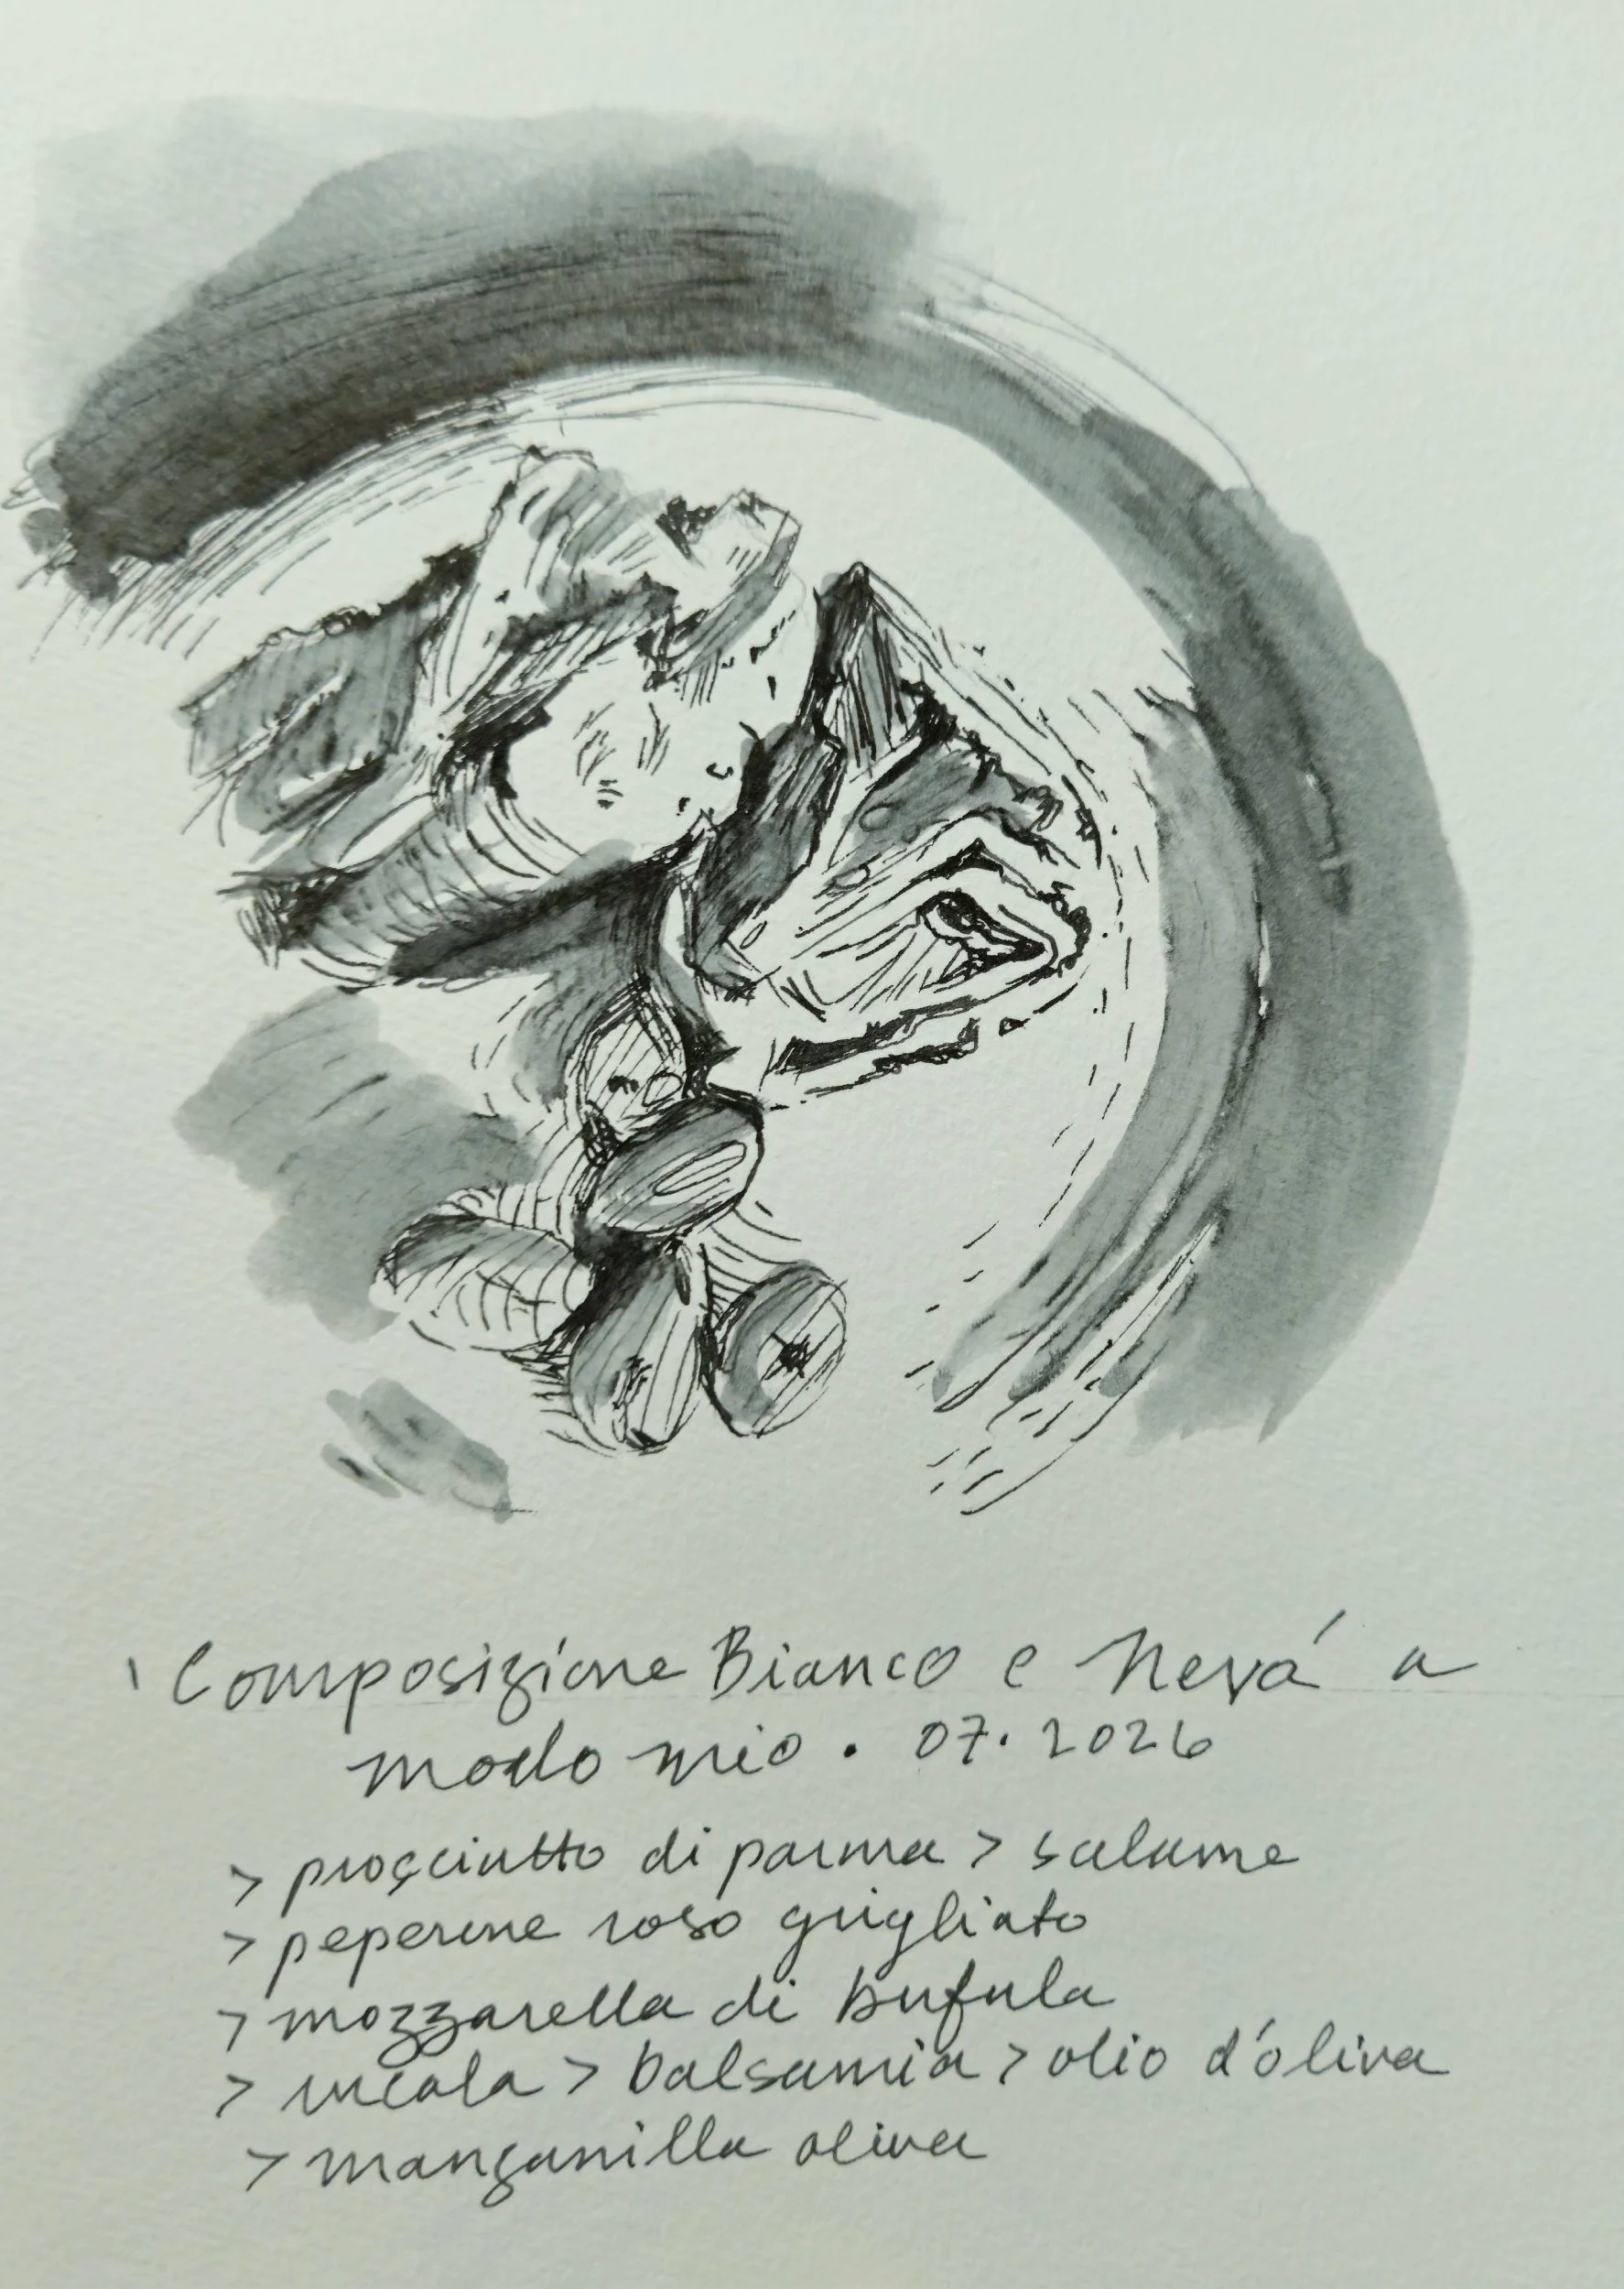 ' Composizione Bianco e Nevá a
modo mio . 07. 2026
> prosciutto di parma > salume
> peperene roso grigliato
> mozzarella di bufula
> rucola > balsamia > olio d'oliva
> manzanilla oliva